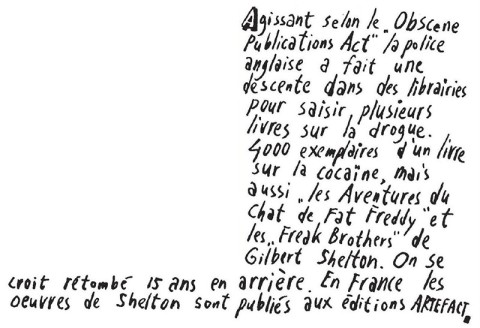 Agissant selon le „Obscene
Publications Act" la police
anglaise a fait une
descente dans des librairies
pour saisir plusieurs
livres sur la drogue.
4000 exemplaires d'un livre
sur la cocaïne, mais
aussi „les Aventures du
Chat de Fat Freddy" et
les „Freak Brothers" de
Gilbert Shelton. On se
croit retombé 15 ans en arrière. En France les
oeuvres de Shelton sont publiés aux éditions ARTEFACT.